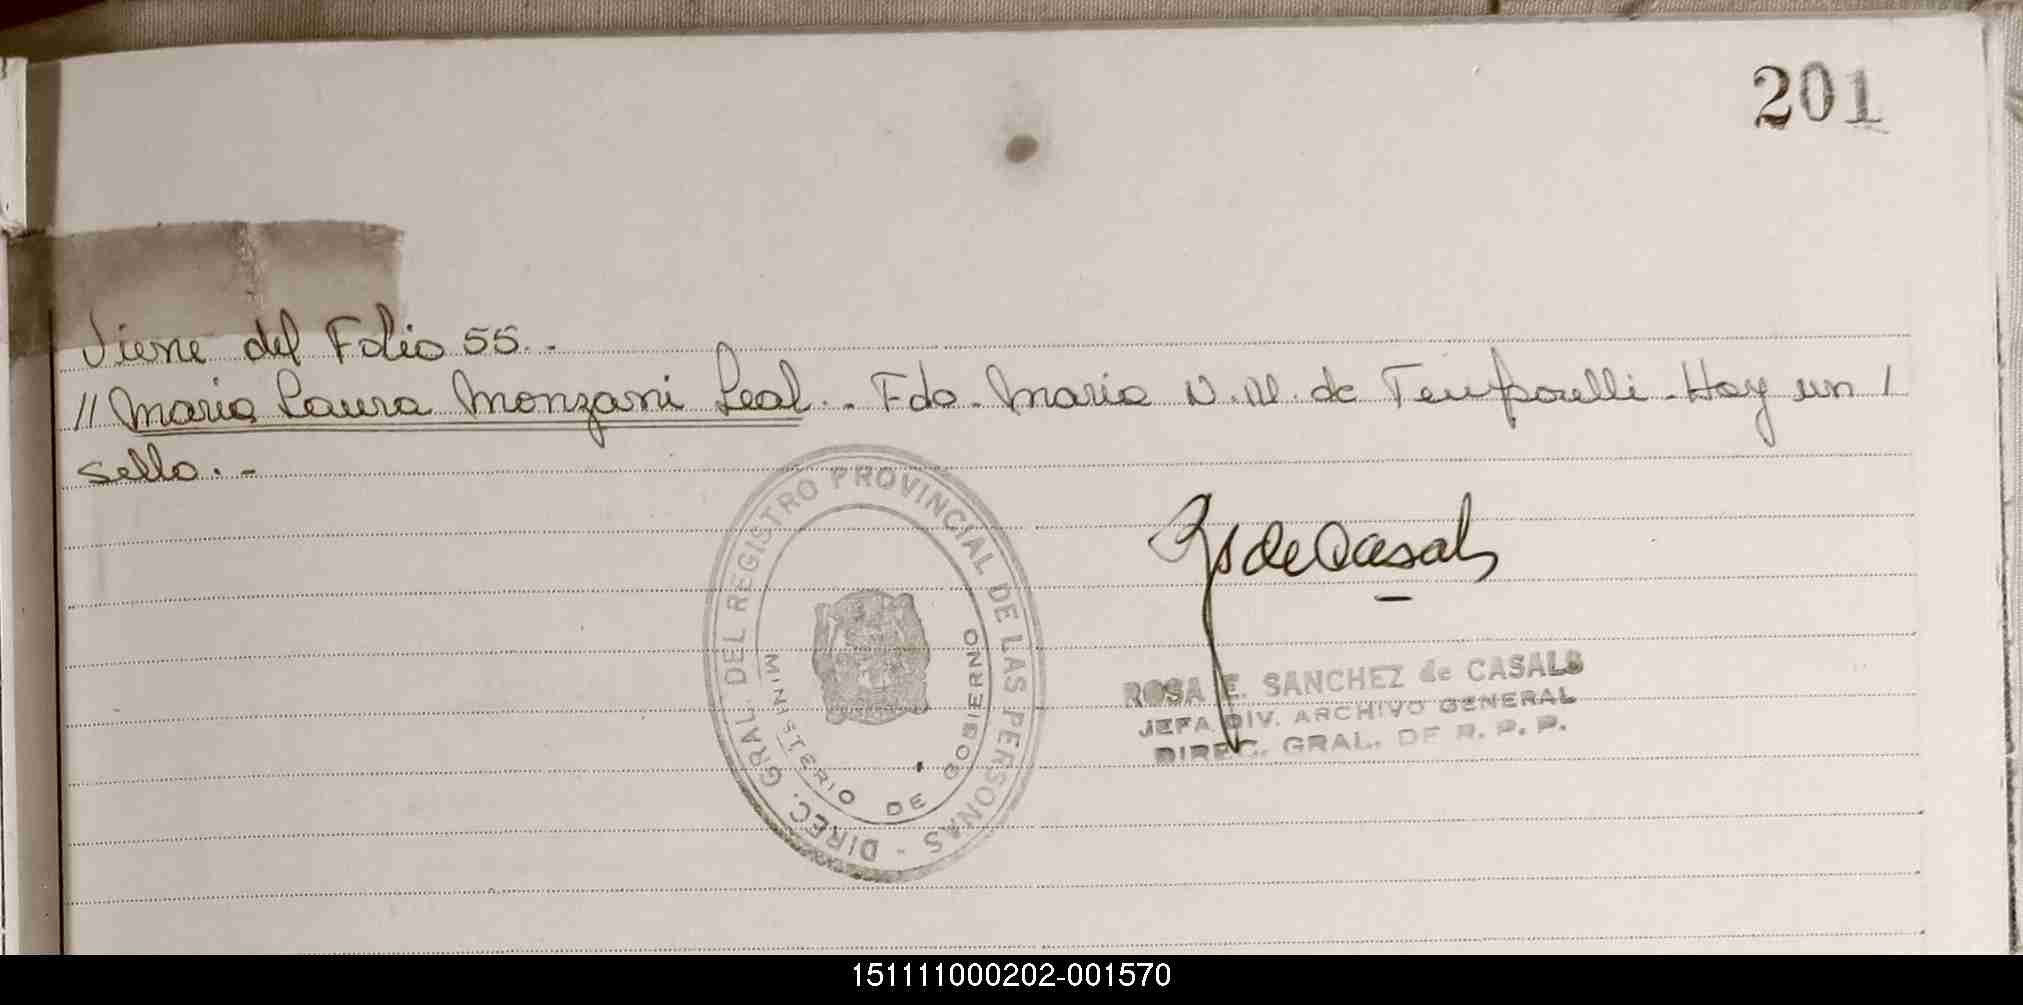 201
Viene del Folio 55.-
// Maria Laura Monzani Leal.- Fdo. Maria N.M. de Temporelli - Hay un /
sello.-
DIREC. GRAL. DEL REGISTRO PROVINCIAL DE LAS PERSONAS -
MINISTERIO DE GOBIERNO
RS de Casals
ROSA E. SANCHEZ de CASALS
JEFA DIV. ARCHIVO GENERAL
DIREC. GRAL. DE R. P. P.
151111000202-001570